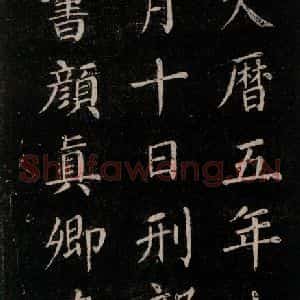 大暦五年
月十日刑部
書顔眞卿
Shufawang.CN